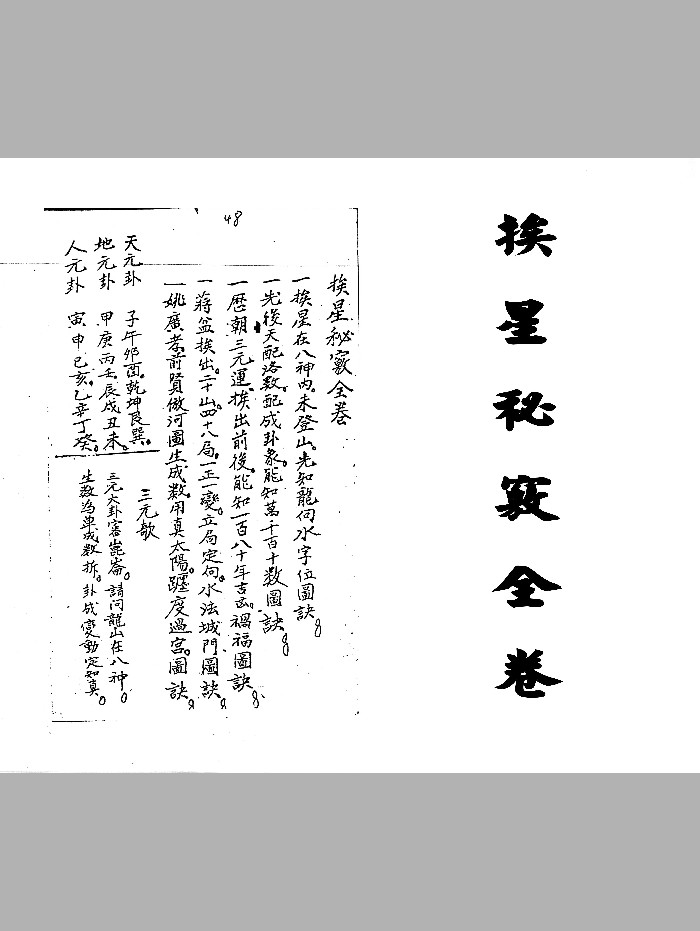 挨星秘竅全卷
48
挨星秘竅全卷
一挨星在八神內。未登山。先知龍向水字位圖訣。
一先後天配洛數。配成卦象。能知萬千百十數圖訣。
一歷朝三元運。挨出前後。能知一百八十年吉凶。禍福圖訣。
一蔣盆挨出。二十山。四十八局。一正一變。立局定向。水法城門圖訣。
一姚廣孝。前賢倣河圖生成數。用真太陽。躔度過宮。圖訣。
天元卦　子午卯酉。乾坤艮巽。
地元卦　甲庚丙壬。辰戌丑未。
人元卦　寅申巳亥。乙辛丁癸。
三元歌
三元大卦審崑崙。請问龍山在八神。
生數為单成數拆。卦成變動定知真。